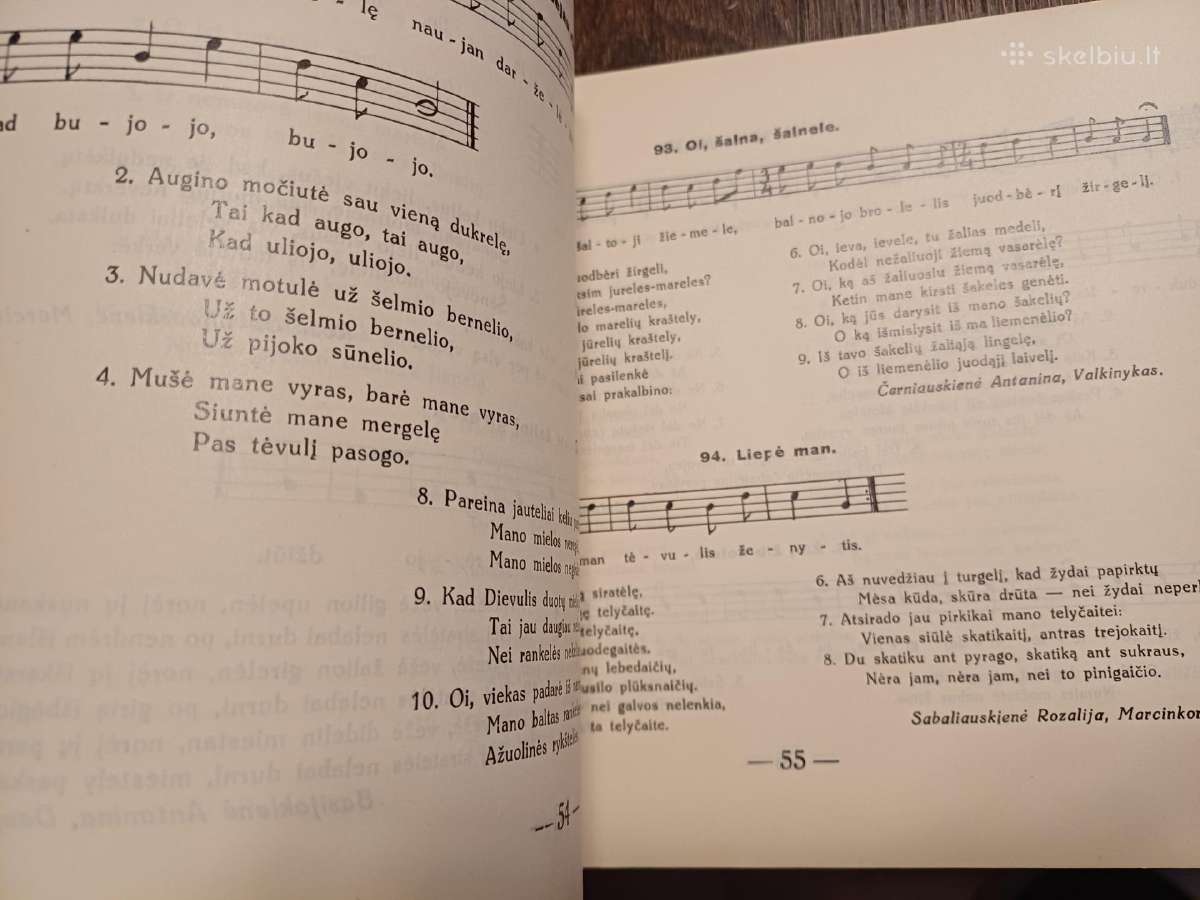 lę nau-jan dar-že-lė
bu-jo-jo, bu-jo-jo.
2. Augino močiutė sau vieną dukrelę,
Tai kad augo, tai augo,
Kad uliojo, uliojo.
3. Nudavė motulė už šelmio bernelio,
Už to šelmio bernelio,
Už pijoko sūnelio.
4. Mušė mane vyras, barė mane vyras,
Siuntė mane mergelę
Pas tėvulį pasogo.
8. Pareina jauteliai
Mano mielos
Mano mielos
9. Kad Dievulis duotų
Tai jau daugiau
Nei rankelės
10. Oi, viekas padarė iš
Mano baltas
Ąžuolinės
— 54 —
skelbiu.lt
93. Oi, šalna, šalnele.
šal-to-ji žie-me-le, bal-no-jo bro-le-lis juod-bė-rį žir-ge-lį.
žirgeli,
jureles-mareles?
marelių kraštely,
jūrelių kraštely,
jūrelių kraštelį.
pasilenkė
prakalbino:
6. Oi, ieva, ievele, tu žalias medeli,
Kodėl nežaliuoji žiemą vasarėlę?
7. Oi, ką aš žaliuosiu žiemą vasarėlę,
Ketin mane kirsti šakeles genėti.
8. Oi, ką jūs darysit iš mano šakelių?
O ką išmislysit iš ma liemenėlio?
9. Iš tavo šakelių žaliąją lingelę,
O iš liemenėlio juodąjį laivelį.
Čarniauskienė Antanina, Valkinykas.
94. Liepė man.
man tė-vu-lis že-ny-tis.
siratėlę,
telyčaitę.
telyčaitę,
lebedaičių,
plūksnaičių.
nei galvos nelenkia,
ta telyčaite.
6. Aš nuvedžiau į turgelį, kad žydai papirktų
Mėsa kūda, skūra drūta — nei žydai
7. Atsirado jau pirkikai mano telyčaitei:
Vienas siūlė skatikaitį, antras trejokaitį.
8. Du skatiku ant pyrago, skatiką ant sukraus,
Nėra jam, nėra jam, nei to pinigaičio.
Sabaliauskienė Rozalija,
— 55 —